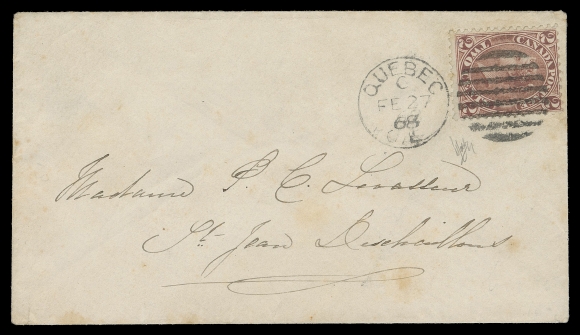 CANADA POS
2
QUEBEC
C
FE 27
68
Madame P. C. Levasseur
St Jean Deschaillons